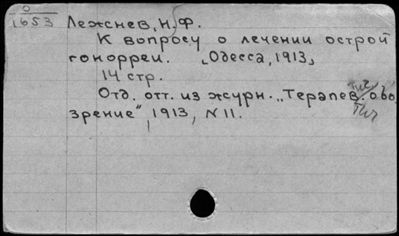 0
1653 Лежнев, Н. Ф.
К вопросу о лечении острой
гонорреи. [Одесса, 1913]
14 стр.
Отд. отт. из журн. „Терапев. обо
зрение" 1913, N 11.